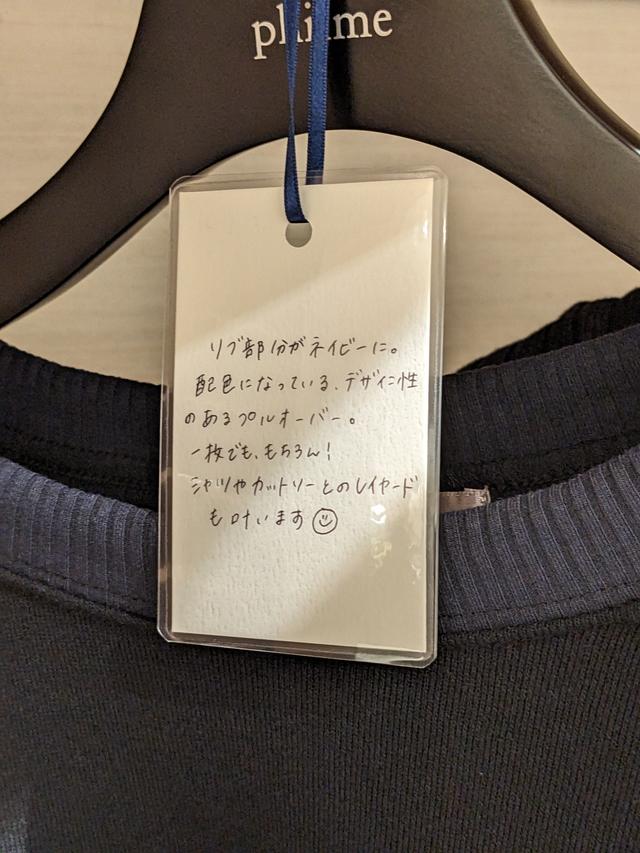 リブ部分がネイビーに。
配色になっている、デザイン性
のあるプルオーバー。
一枚でも、もちろん!
シャツやカットソーとのレイヤード
も叶います